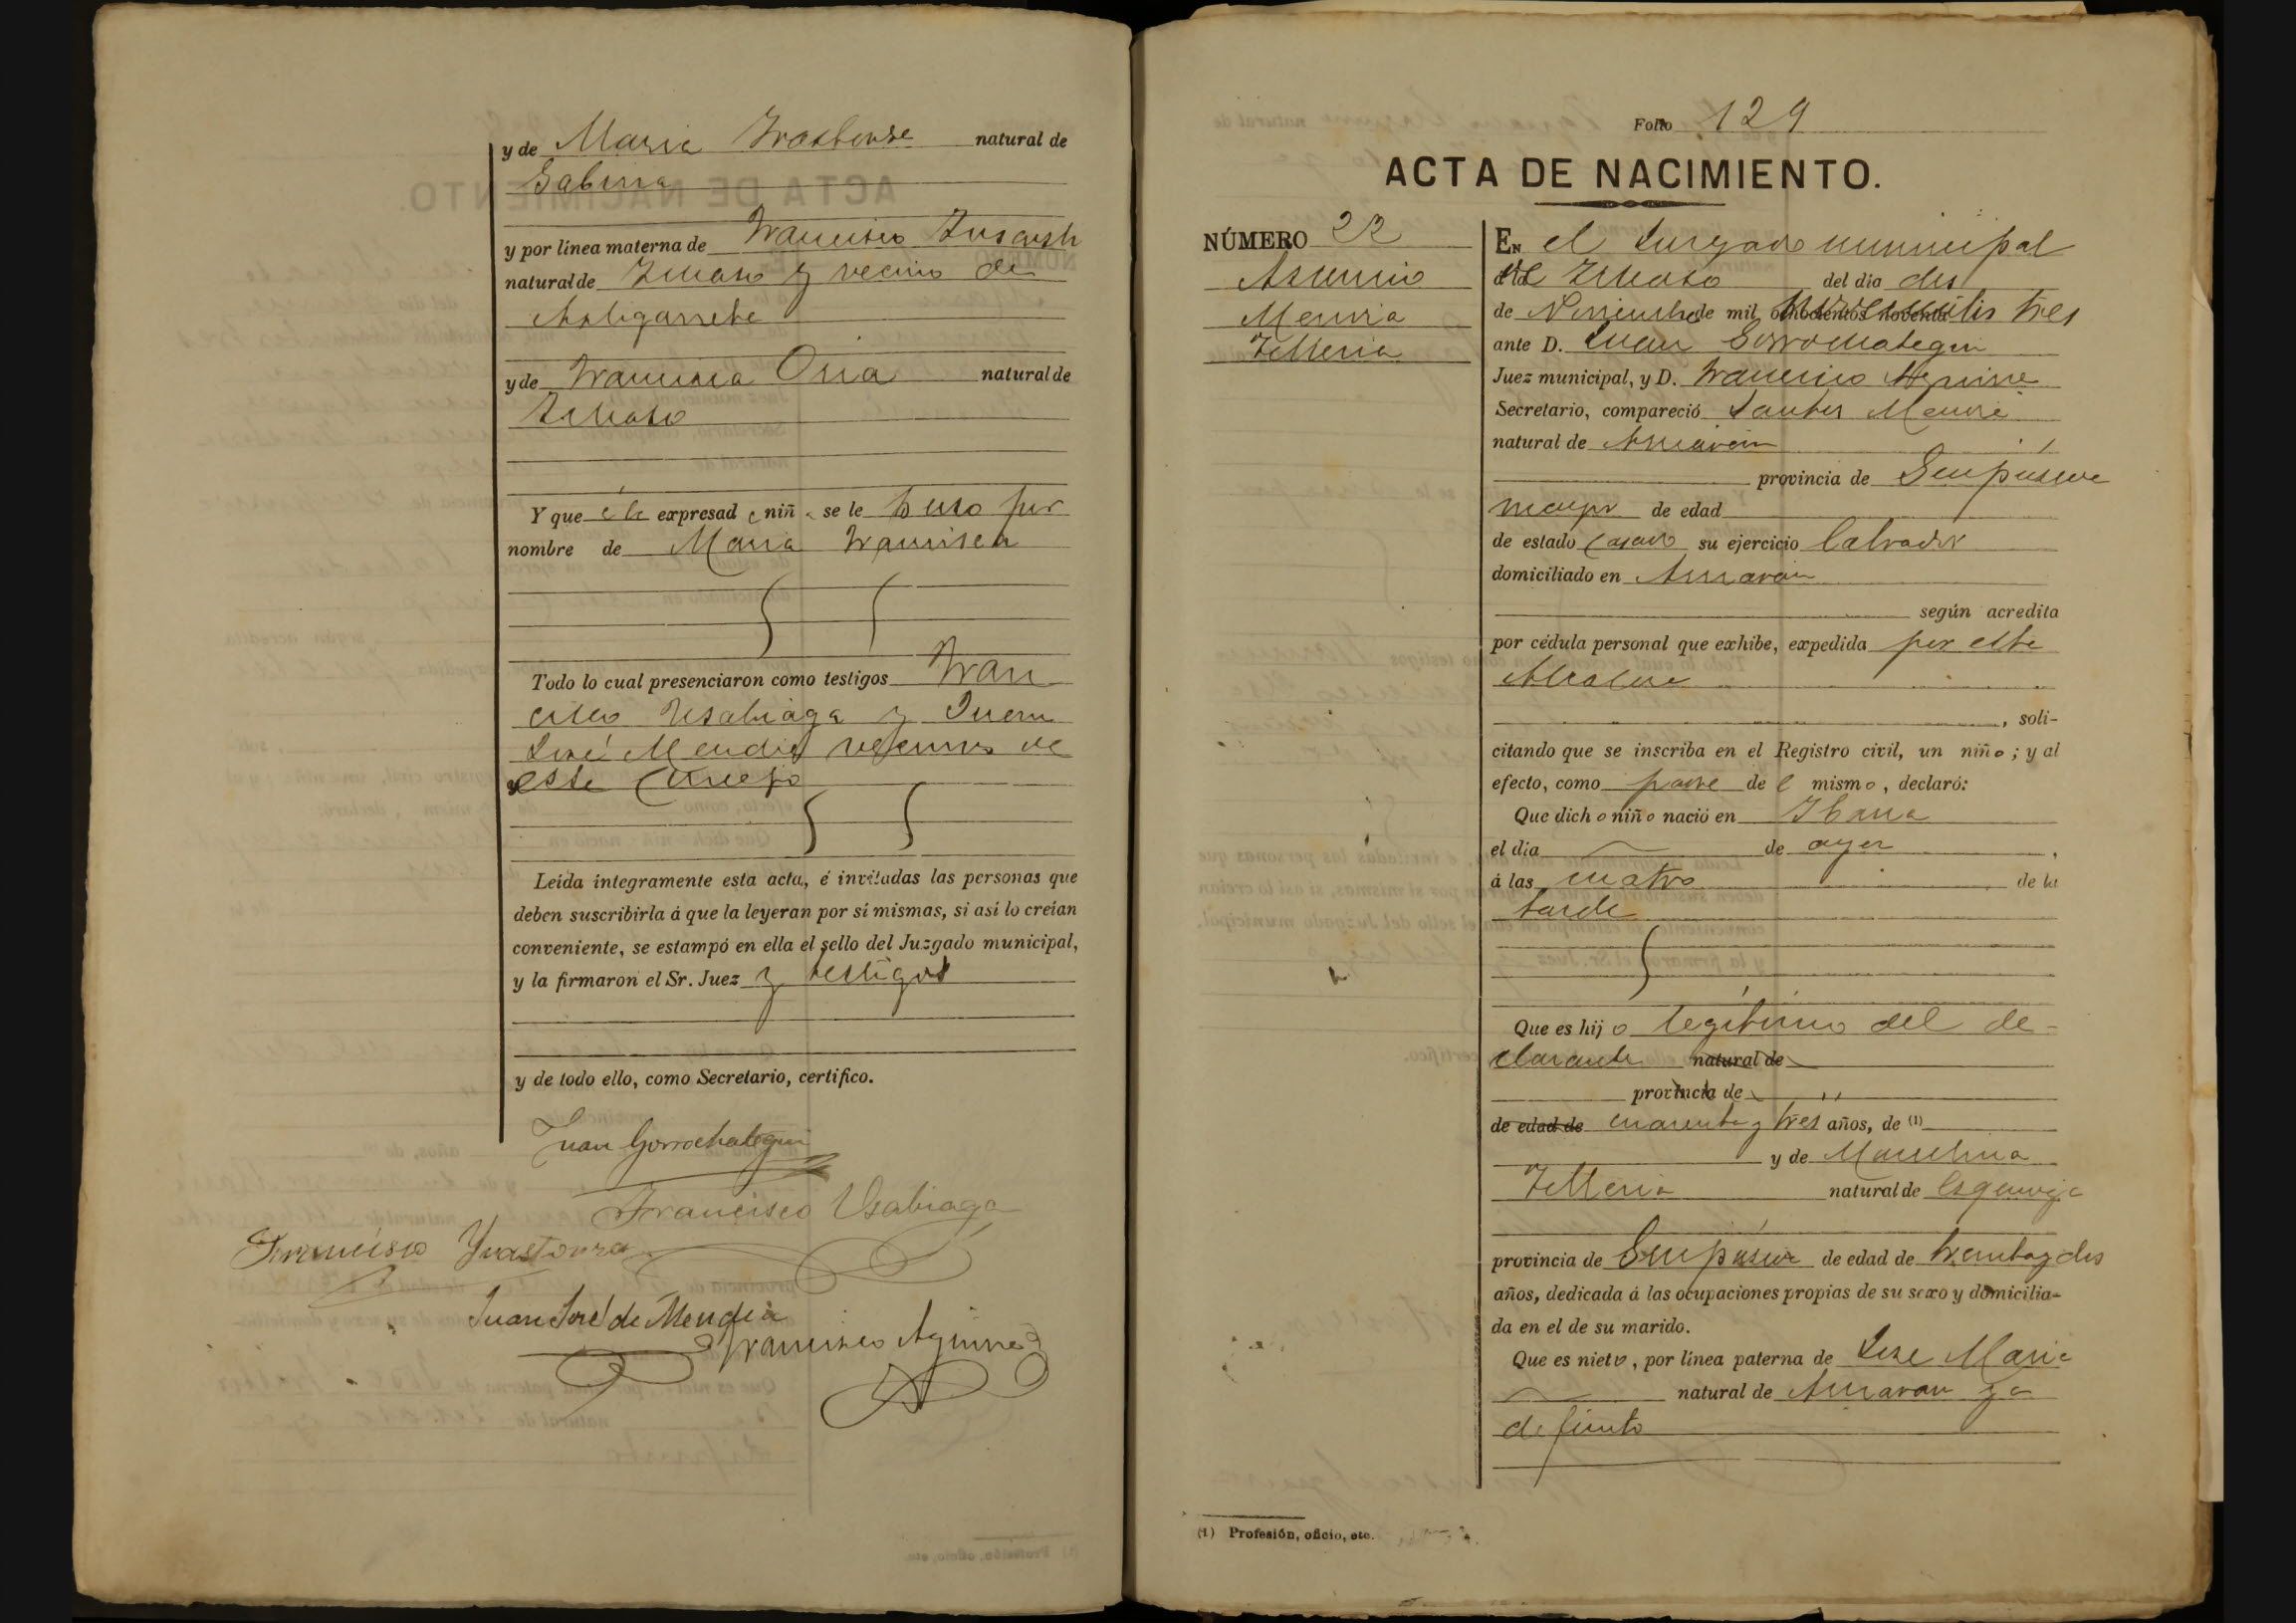 y de Maria Yrastorza natural de
Gabiria
y por línea materna de Francisco
natural de Itsaso y vecino de
Astigarreta
y de Francisca Oria natural de
Itsaso
Y que á la expresada niña se le puso por
nombre de Maria Francisca
Todo lo cual presenciaron como testigos Fran
cisco Usabiaga y Juan
José Mendia vecinos de
este Concejo
Leída íntegramente esta acta, é invitadas las personas que
deben suscribirla á que la leyeran por sí mismas, si así lo creían
conveniente, se estampó en ella el sello del Juzgado municipal,
y la firmaron el Sr. Juez y testigos
y de todo ello, como Secretario, certifico.
Juan Gorrochategui
Francisco Usabiaga
Francisco Yrastorza
Juan José de Mendia
Francisco Aguirre
Folio 129
ACTA DE NACIMIENTO.
NÚMERO 22
Asencio
Telleria
En el Juzgado municipal
de Itsaso del dia dos
de Noviembre de mil ochocientos noventa tres
ante D. Juan Gorrochategui
Juez municipal, y D. Francisco Aguirre
Secretario, compareció Santos
natural de
provincia de Guipúzcoa
mayor de edad
de estado casado su ejercicio labrador
domiciliado en
según acredita
por cédula personal que exhibe, expedida por esta
Alcaldia
, soli-
citando que se inscriba en el Registro civil, un niño; y al
efecto, como padre de l mismo, declaró:
Que dicho niño nació en Ibarra
el dia de ayer,
á las cuatro de la
tarde
Que es hijo legítimo del de-
clarante natural de
provincia de
de edad de cuarenta y tres años, de (1)
y de Marcelina
Telleria natural de Ezquioga
provincia de Guipúzcoa de edad de treinta y dos
años, dedicada á las ocupaciones propias de su sexo y domicilia-
da en el de su marido.
Que es nieto, por línea paterna de José Maria
natural de ya
difunto
(1) Profesión, oficio, etc.